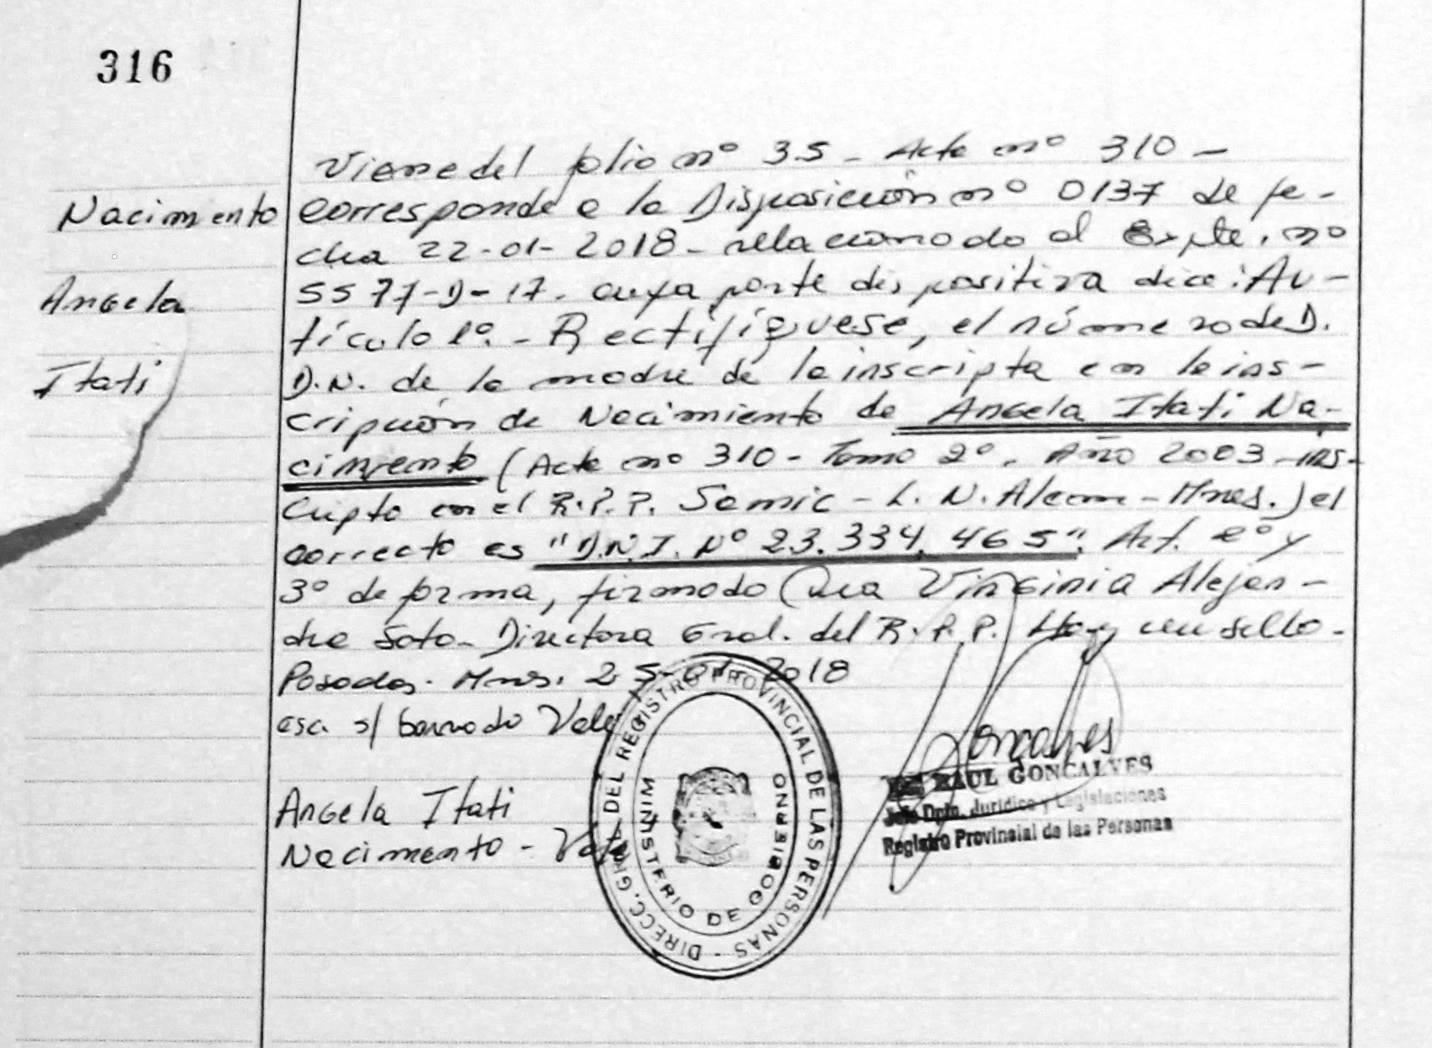 316
Viene del folio nº 35 - Acta nº 310 -
Nacimento
corresponde a la Disposición nº 0137 de fe-
cha 22-01-2018 - relacionado al Expte. nº
Angela
5577-D-17. cuya parte dispositiva dice: Ar-
tículo 1º. - Rectifíquese, el número de D.
Itati
D.N. de la madre de la inscripta en la ins-
cripción de Nacimiento de Angela Itati Na-
cimento (Acta nº 310 - Tomo 2º. Año 2003 - ins-
cripto en el R.P.P. Semic - L. N. Alem - Mnes.) el
correcto es "D.N.I. Nº 23.334.465". Art. 2º y
3º de forma, firmado Dra Virginia Alejan-
dra Soto - Directora Gral. del R.P.P. Hay un sello -
Posadas. Mnes. 25-01-2018
esc. s/ borrado Vale
Angela Itati
Nacimento - Vale
DIRECC. GRAL DEL REGISTRO PROVINCIAL DE LAS PERSONAS -
MINISTERIO DE GOBIERNO
Goncalves
RAUL GONCALVES
Jefe Dpto. Jurídico y Legislaciones
Registro Provincial de las Personas